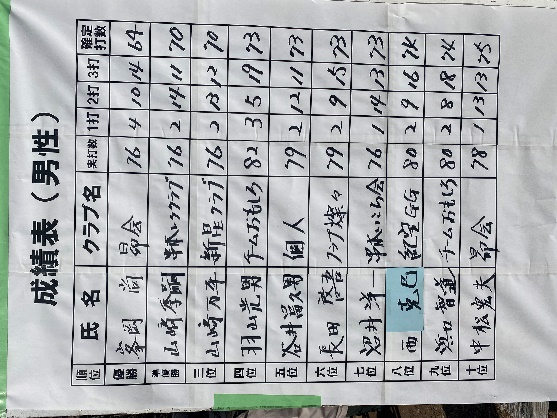 成績表(男性)
順位 氏名 クラブ名 実打数 1打 2打 3打 確定打数
優勝 峯岡 尚 昴会 76 4 10 14 64
準優勝 山崎 孝嗣 クラブ 76 2 14 11 70
三位 山崎 万年 新星クラブ 76 2 13 12 70
四位 羽山 光男 チームおもしろ 82 3 5 19 73
五位 谷井 富久男 個人 79 2 12 11 73
六位 長田 クラブ燦々 79 2 9 15 73
七位 沼井 洋一 会 76 1 14 13 73
八位 西 克巳 紀宝GG 80 2 9 16 74
九位 浜口 智道 チームおもしろ 80 2 8 18 74
十位 中松 宏夫 昴会 78 1 13 13 75